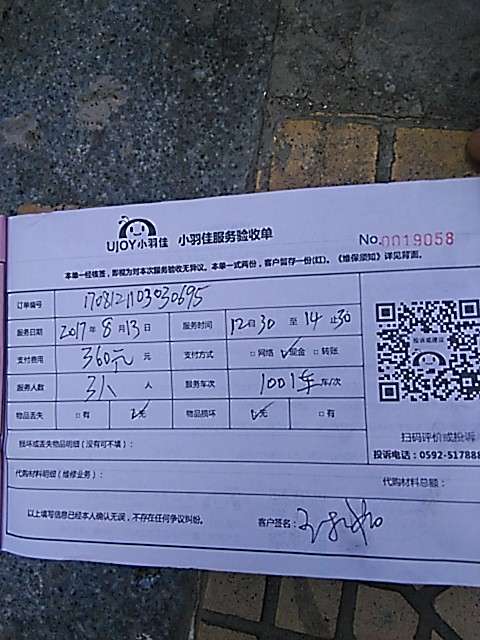 UJOY小羽佳 小羽佳服务验收单 No.0019058
本单一经核签，即视为对本次服务验收无异议。本单一式两份，客户留存一份(红)。《维保须知》详见背面。
订单编号 1708121103030695
服务日期 2017年8月13日 服务时间 12时30至14止30
支付费用 360元 元 支付方式 □网络 ☑现金 □转账
服务人数 3人 人 服务车次 1001车 车/次
物品丢失 □有 ☑无 物品损坏 ☑无 □有
投诉或建议
损坏或丢失物品明细（没有可不填）：
扫码评价或投诉
投诉电话：0592-517888
代购材料明细（维修业务）：
代购材料总额：
以上填写信息已经本人确认无误，不存在任何争议纠纷。 客户签名：